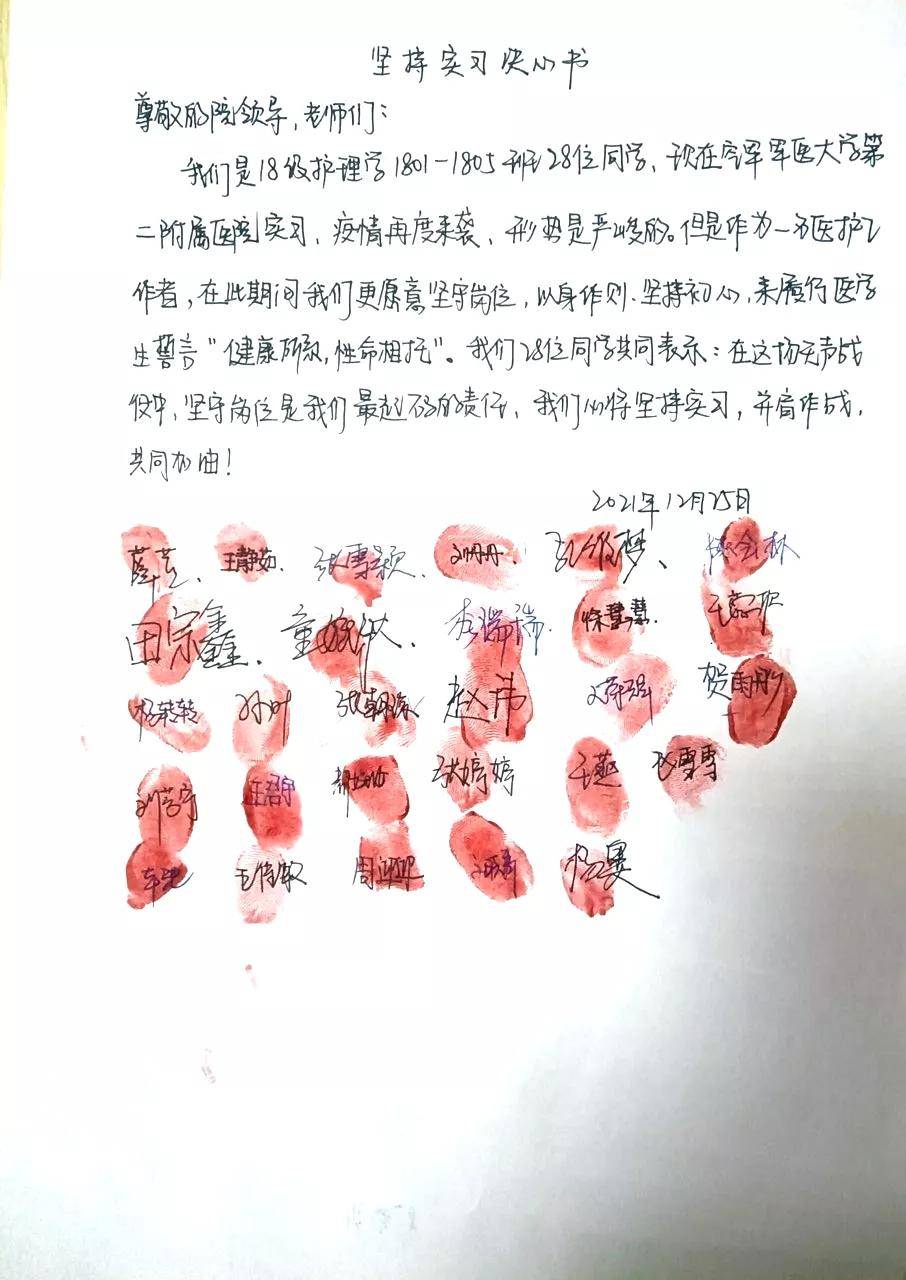 坚持实习决心书
尊敬的院领导,老师们:
我们是18级护理学1801-1805班28位同学、现在空军军医大学第
二附属医院实习、疫情再度来袭、形势是严峻的。但是作为一名医护工
作者,在此期间我们更愿意坚守岗位,以身作则.坚持初心,来履行医学
生誓言"健康所系,性命相托"。我们28位同学共同表示:在这场无声战
役中,坚守岗位是我们最起码的责任、我们必将坚持实习,并肩作战,
共同加油!
2021年12月25日
王静茹、张雪颖、刘丹丹、
田宗鑫、童婉依、李瑞瑞、徐慧慧、
杨转转 孙叶 张朝 赵伟 贺雨彤
王燕 张婷婷 张雪雪
周迎迎 杨旻